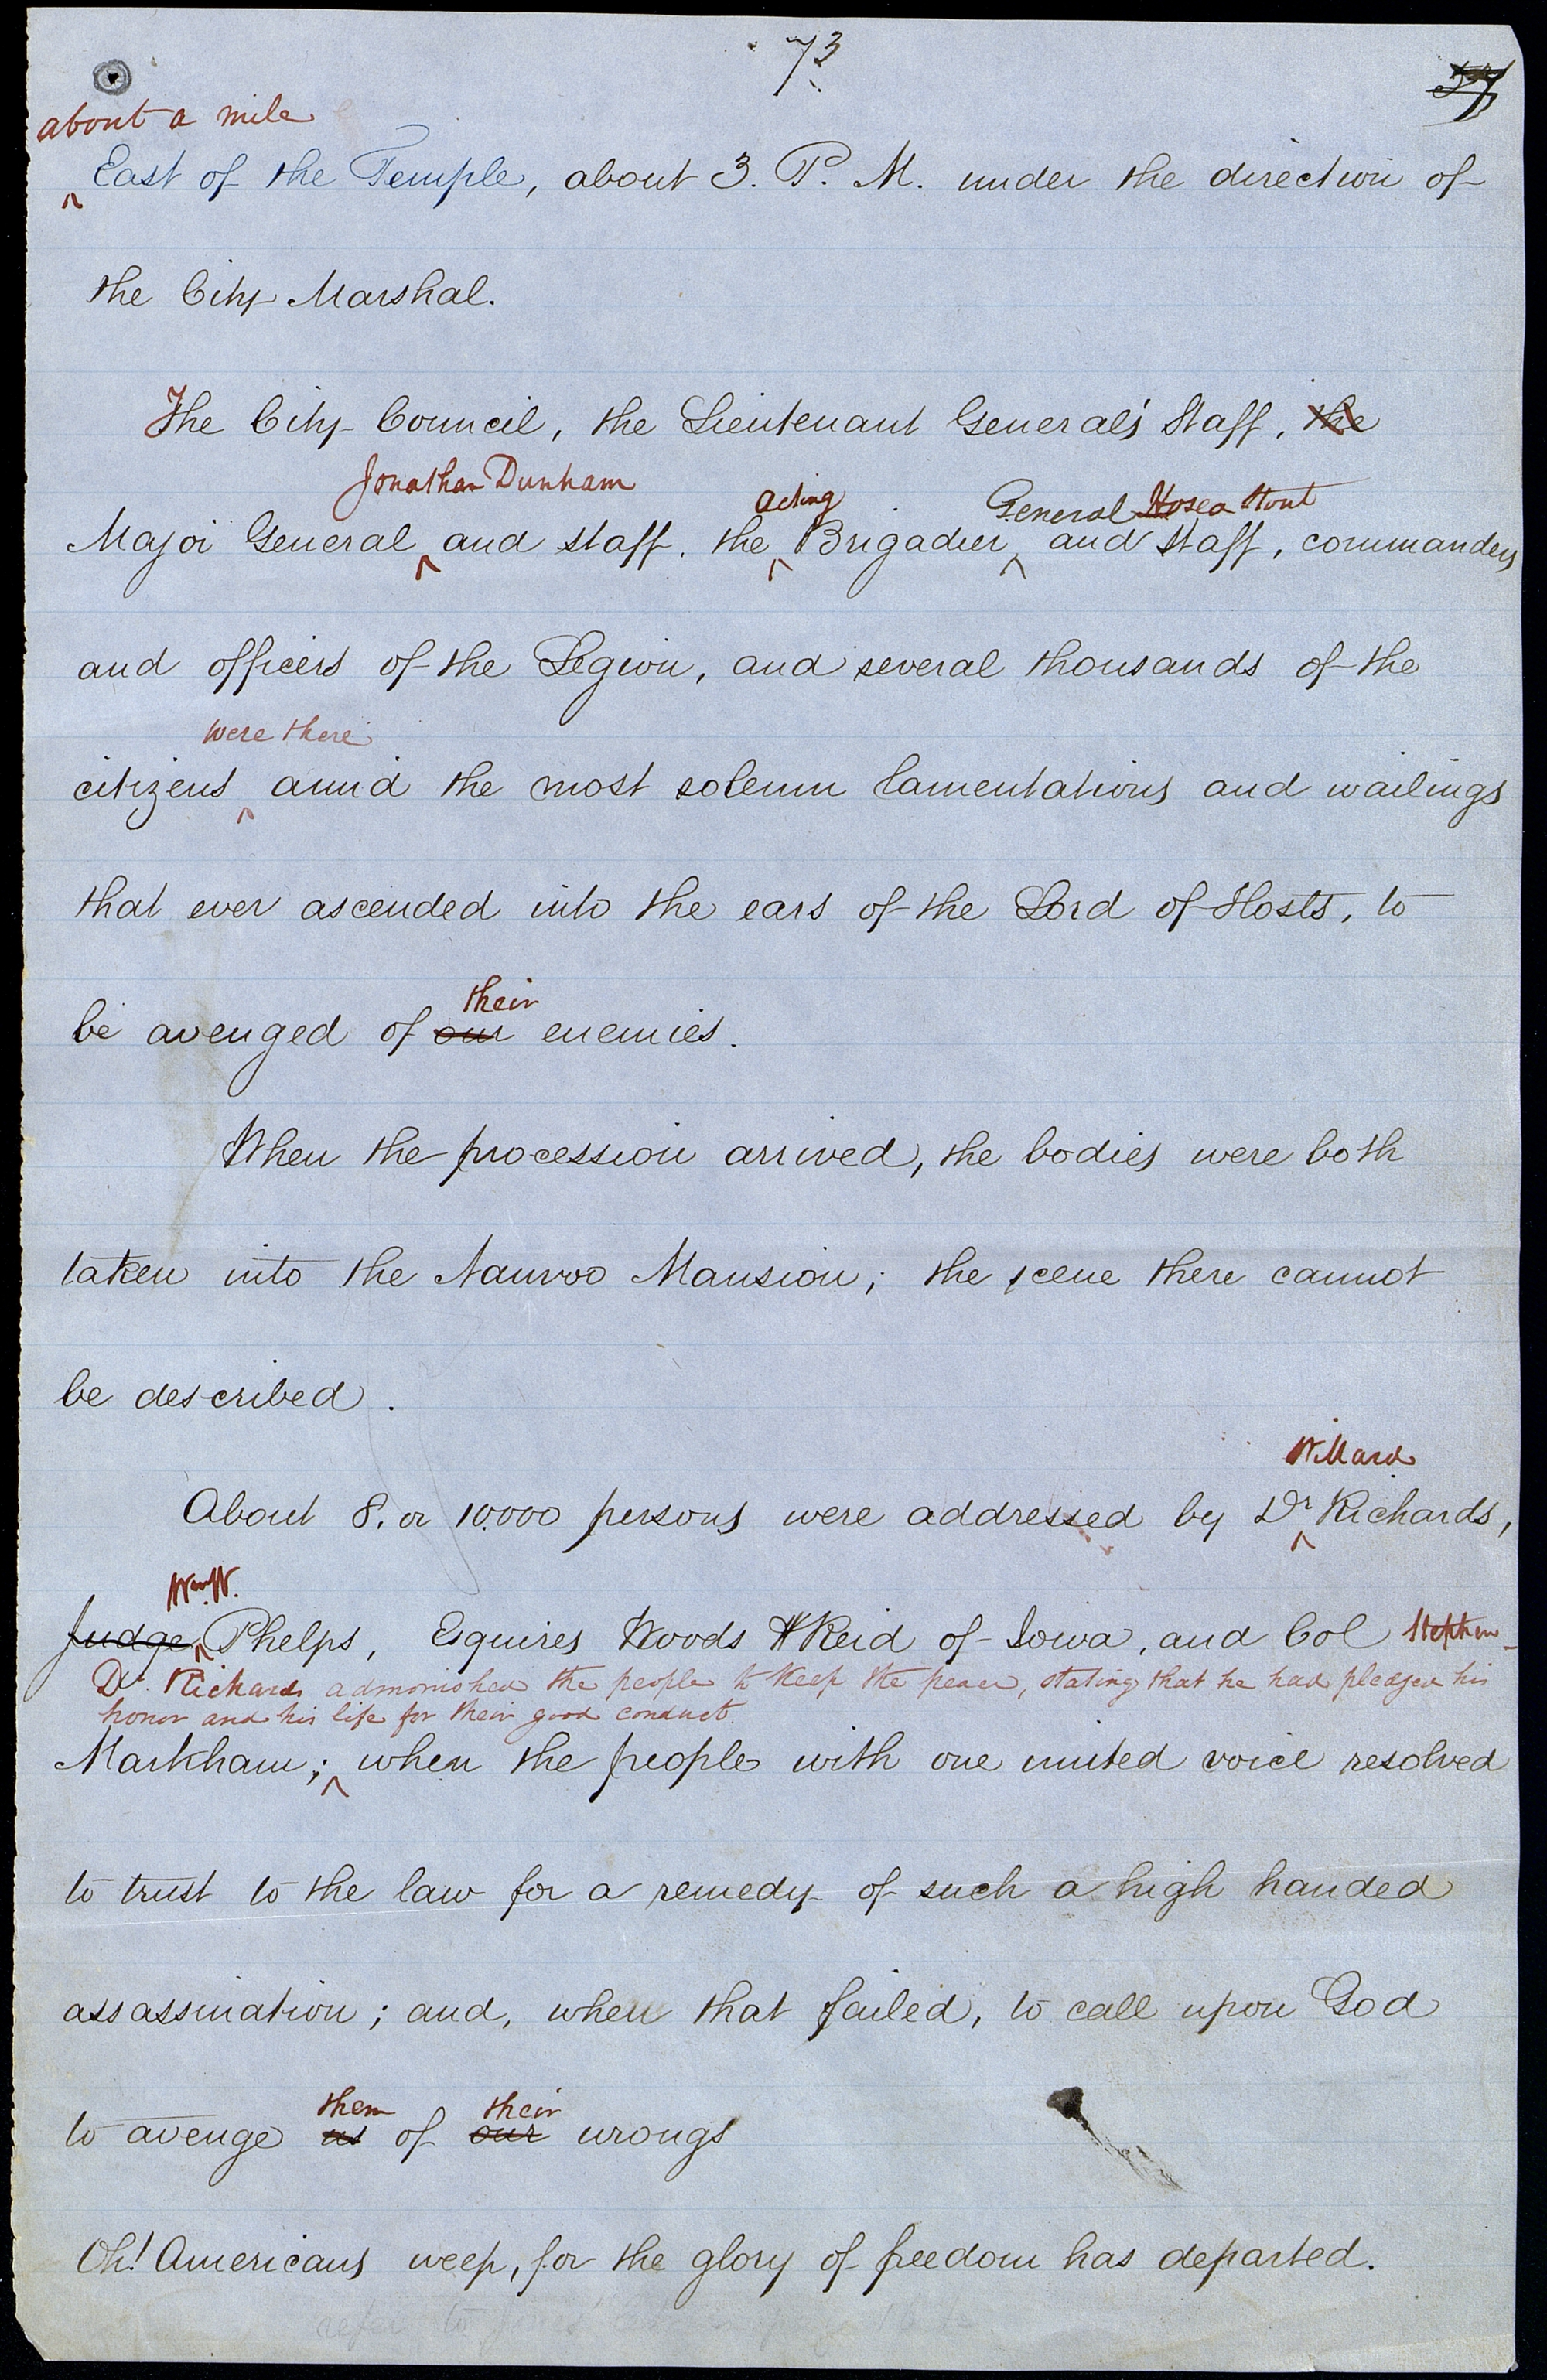 73
37
about a mile
East of the Temple, about 3. P. M. under the direction of
the City Marshal.
The City Council, the Lieutenant General's Staff, the
Jonathan Dunham acting General Hosea Stout
Major General and staff. the Brigadier and Staff, commanders
and officers of the Legion, and several thousands of the
were there
citizens amid the most solemn lamentations and wailings
that ever ascended into the ears of the Lord of Hosts, to
their
be avenged of our enemies.
When the procession arrived, the bodies were both
taken into the Nauvoo Mansion; the scene there cannot
be described.
Willard
About 8. or 10.000 persons were addressed by Dr Richards,
Wm. W.
Judge Phelps, Esquires Woods & Reid of Iowa, and Col Stephen
Dr. Richards admonished the people to keep the peace, stating that he had pledged his
honor and his life for their good conduct.
Markham; when the people with one united voice resolved
to trust to the law for a remedy of such a high handed
assassination; and, when that failed, to call upon God
them their
to avenge us of our wrongs
Oh! Americans weep, for the glory of freedom has departed.
refer to